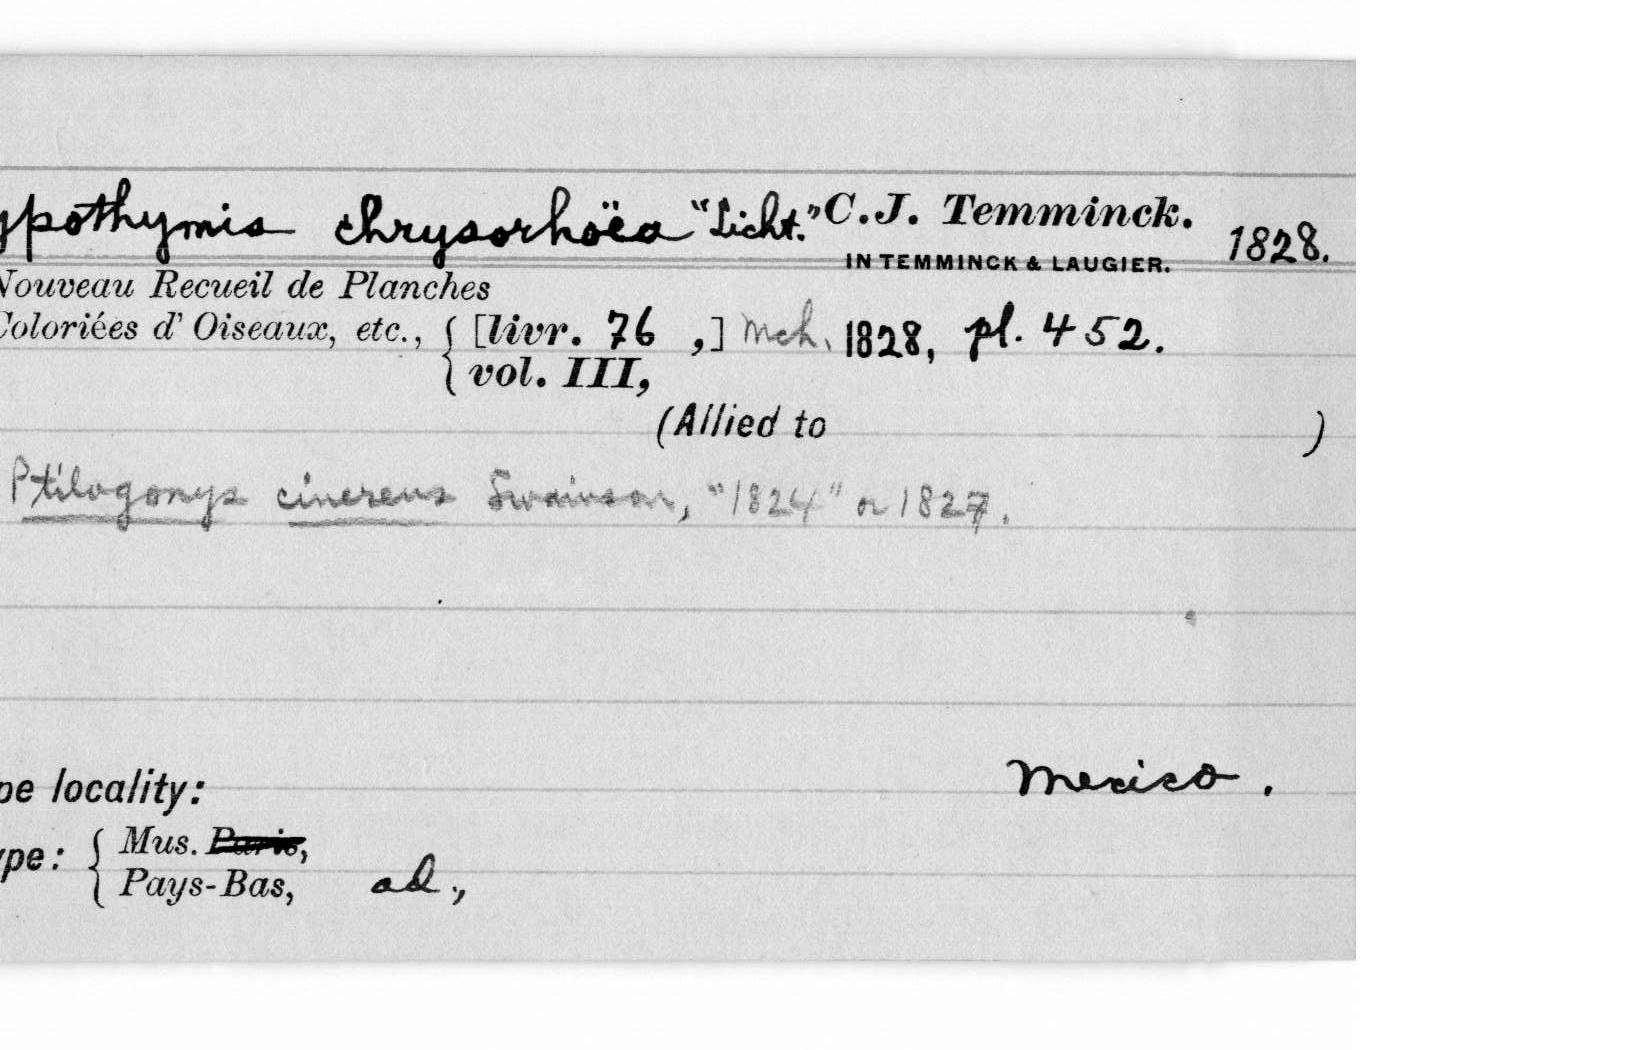 ypothymis chrysorhöea "Licht." C.J. Temminck. 1828.
IN TEMMINCK & LAUGIER.
Nouveau Recueil de Planches
Coloriées d' Oiseaux, etc., { [livr. 76 ,] Mch. 1828, pl. 452.
vol. III,
(Allied to )
Ptilogonys cinereus Swainson, "1824" or 1827.
pe locality: Mexico.
ype: { Mus. Paris,
Pays-Bas, ad.,